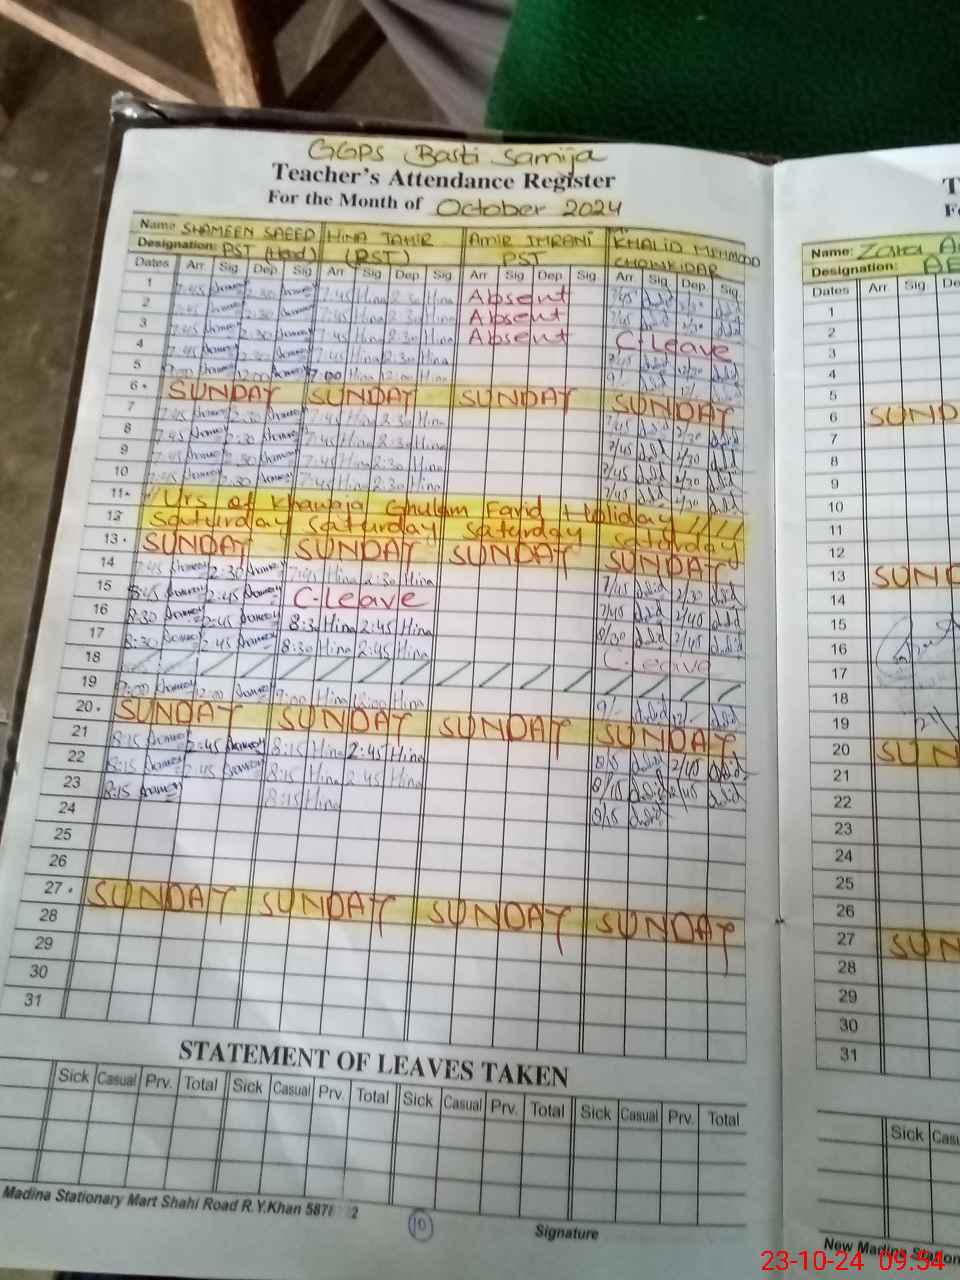 GGPS Basti Samija
Teacher's Attendance Register
For the Month of October 2024
Name SHAMEEN SAEED HINA TAHIR AMIR IMRAN KHALID MEHMOOD
Designation: PST (Head) (PST) PST CHOWKIDAR
Dates Arr. Sig. Dep. Sig Arr. Sig. Dep. Sig. Arr Sig. Dep. Sig. Arr Sig. Dep. Sig.
1 7:45 2:30 7:45 Hina 2:30 Hina Absent 7/45 2/30
2 7:45 2:30 7:45 Hina 2:30 Hina Absent 7/45 2/30
3 7:45 2:30 7:45 Hina 2:30 Hina Absent C-Leave
4 7:45 2:30 7:45 Hina 2:30 Hina 7/45 2/30
5 7:00 12:00 7:00 Hina 12:00 Hina 9/- 12/-
6 SUNDAY SUNDAY SUNDAY SUNDAY
7 7:45 2:30 7:45 Hina 2:30 Hina 7/45 2/30
8 7:45 2:30 7:45 Hina 2:30 Hina 7/45 2/30
9 7:45 2:30 7:45 Hina 2:30 Hina 7/45 2/30
10 7:45 2:30 7:45 Hina 2:30 Hina 7/45 2/30
11 Urs of Khawaja Ghulam Farid Holiday
12 Saturday Saturday Saturday Saturday
13 SUNDAY SUNDAY SUNDAY SUNDAY
14 7:45 2:30 7:45 Hina 2:30 Hina 7/45 2/30
15 8:45 2:45 C-Leave 7/45 2/45
16 8:30 2:45 8:30 Hina 2:45 Hina 8/30 2/45
17 8:30 2:45 8:30 Hina 2:45 Hina C-Leave
18
19 9:00 12:00 9:00 Hina 12:00 Hina 9/- 12/-
20 SUNDAY SUNDAY SUNDAY SUNDAY
21 8:15 2:45 8:15 Hina 2:45 Hina 8/15 2/45
22 8:15 2:45 8:15 Hina 2:45 Hina 8/15 2/45
23 8:15 8:15 Hina 8/15
24
25
26
27 SUNDAY SUNDAY SUNDAY SUNDAY
28
29
30
31
STATEMENT OF LEAVES TAKEN
Sick Casual Prv. Total Sick Casual Prv. Total Sick Casual Prv. Total Sick Casual Prv. Total
Madina Stationary Mart Shahi Road R.Y.Khan
10
Signature
Name: Zara
Designation:
Dates Arr. Sig.
1
2
3
4
5
6 SUND
7
8
9
10
11
12
13 SUND
14
15
16
17
18
19
20 SUN
21
22
23
24
25
26
27 SUN
28
29
30
31
Sick Casu
New Madina Station
23-10-24 09:54